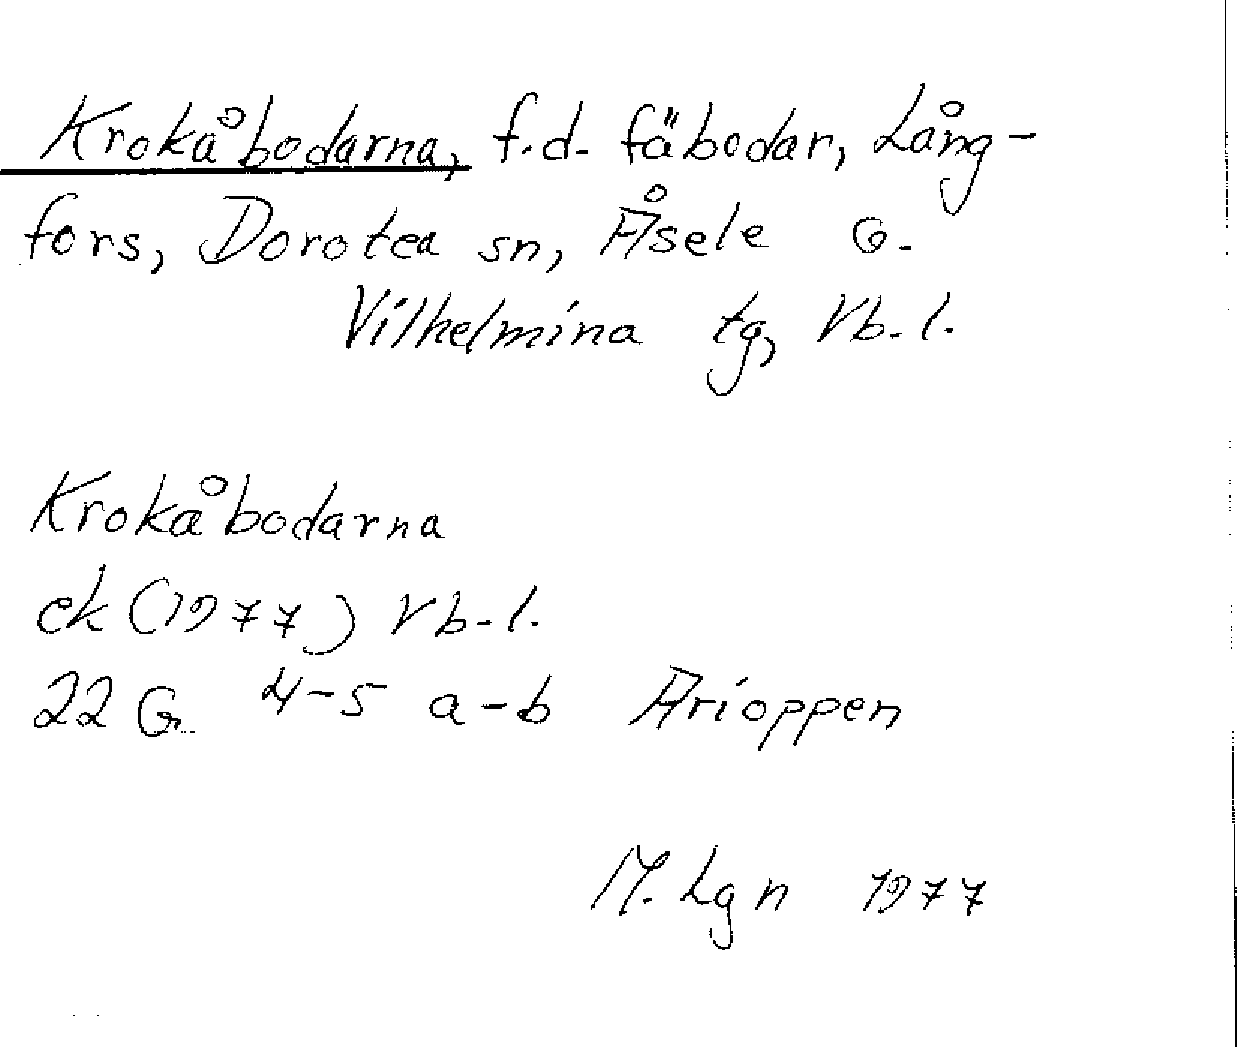 Krokåbodarna, f.d. fäbodar, Lång-
fors, Dorotea sn, Åsele o.
Vilhelmina tg, Vb. l.
Krokåbodarna
ek (1977) Vb-l.
22 G 4-5 a-b Arioppen
M. Lgn 1977